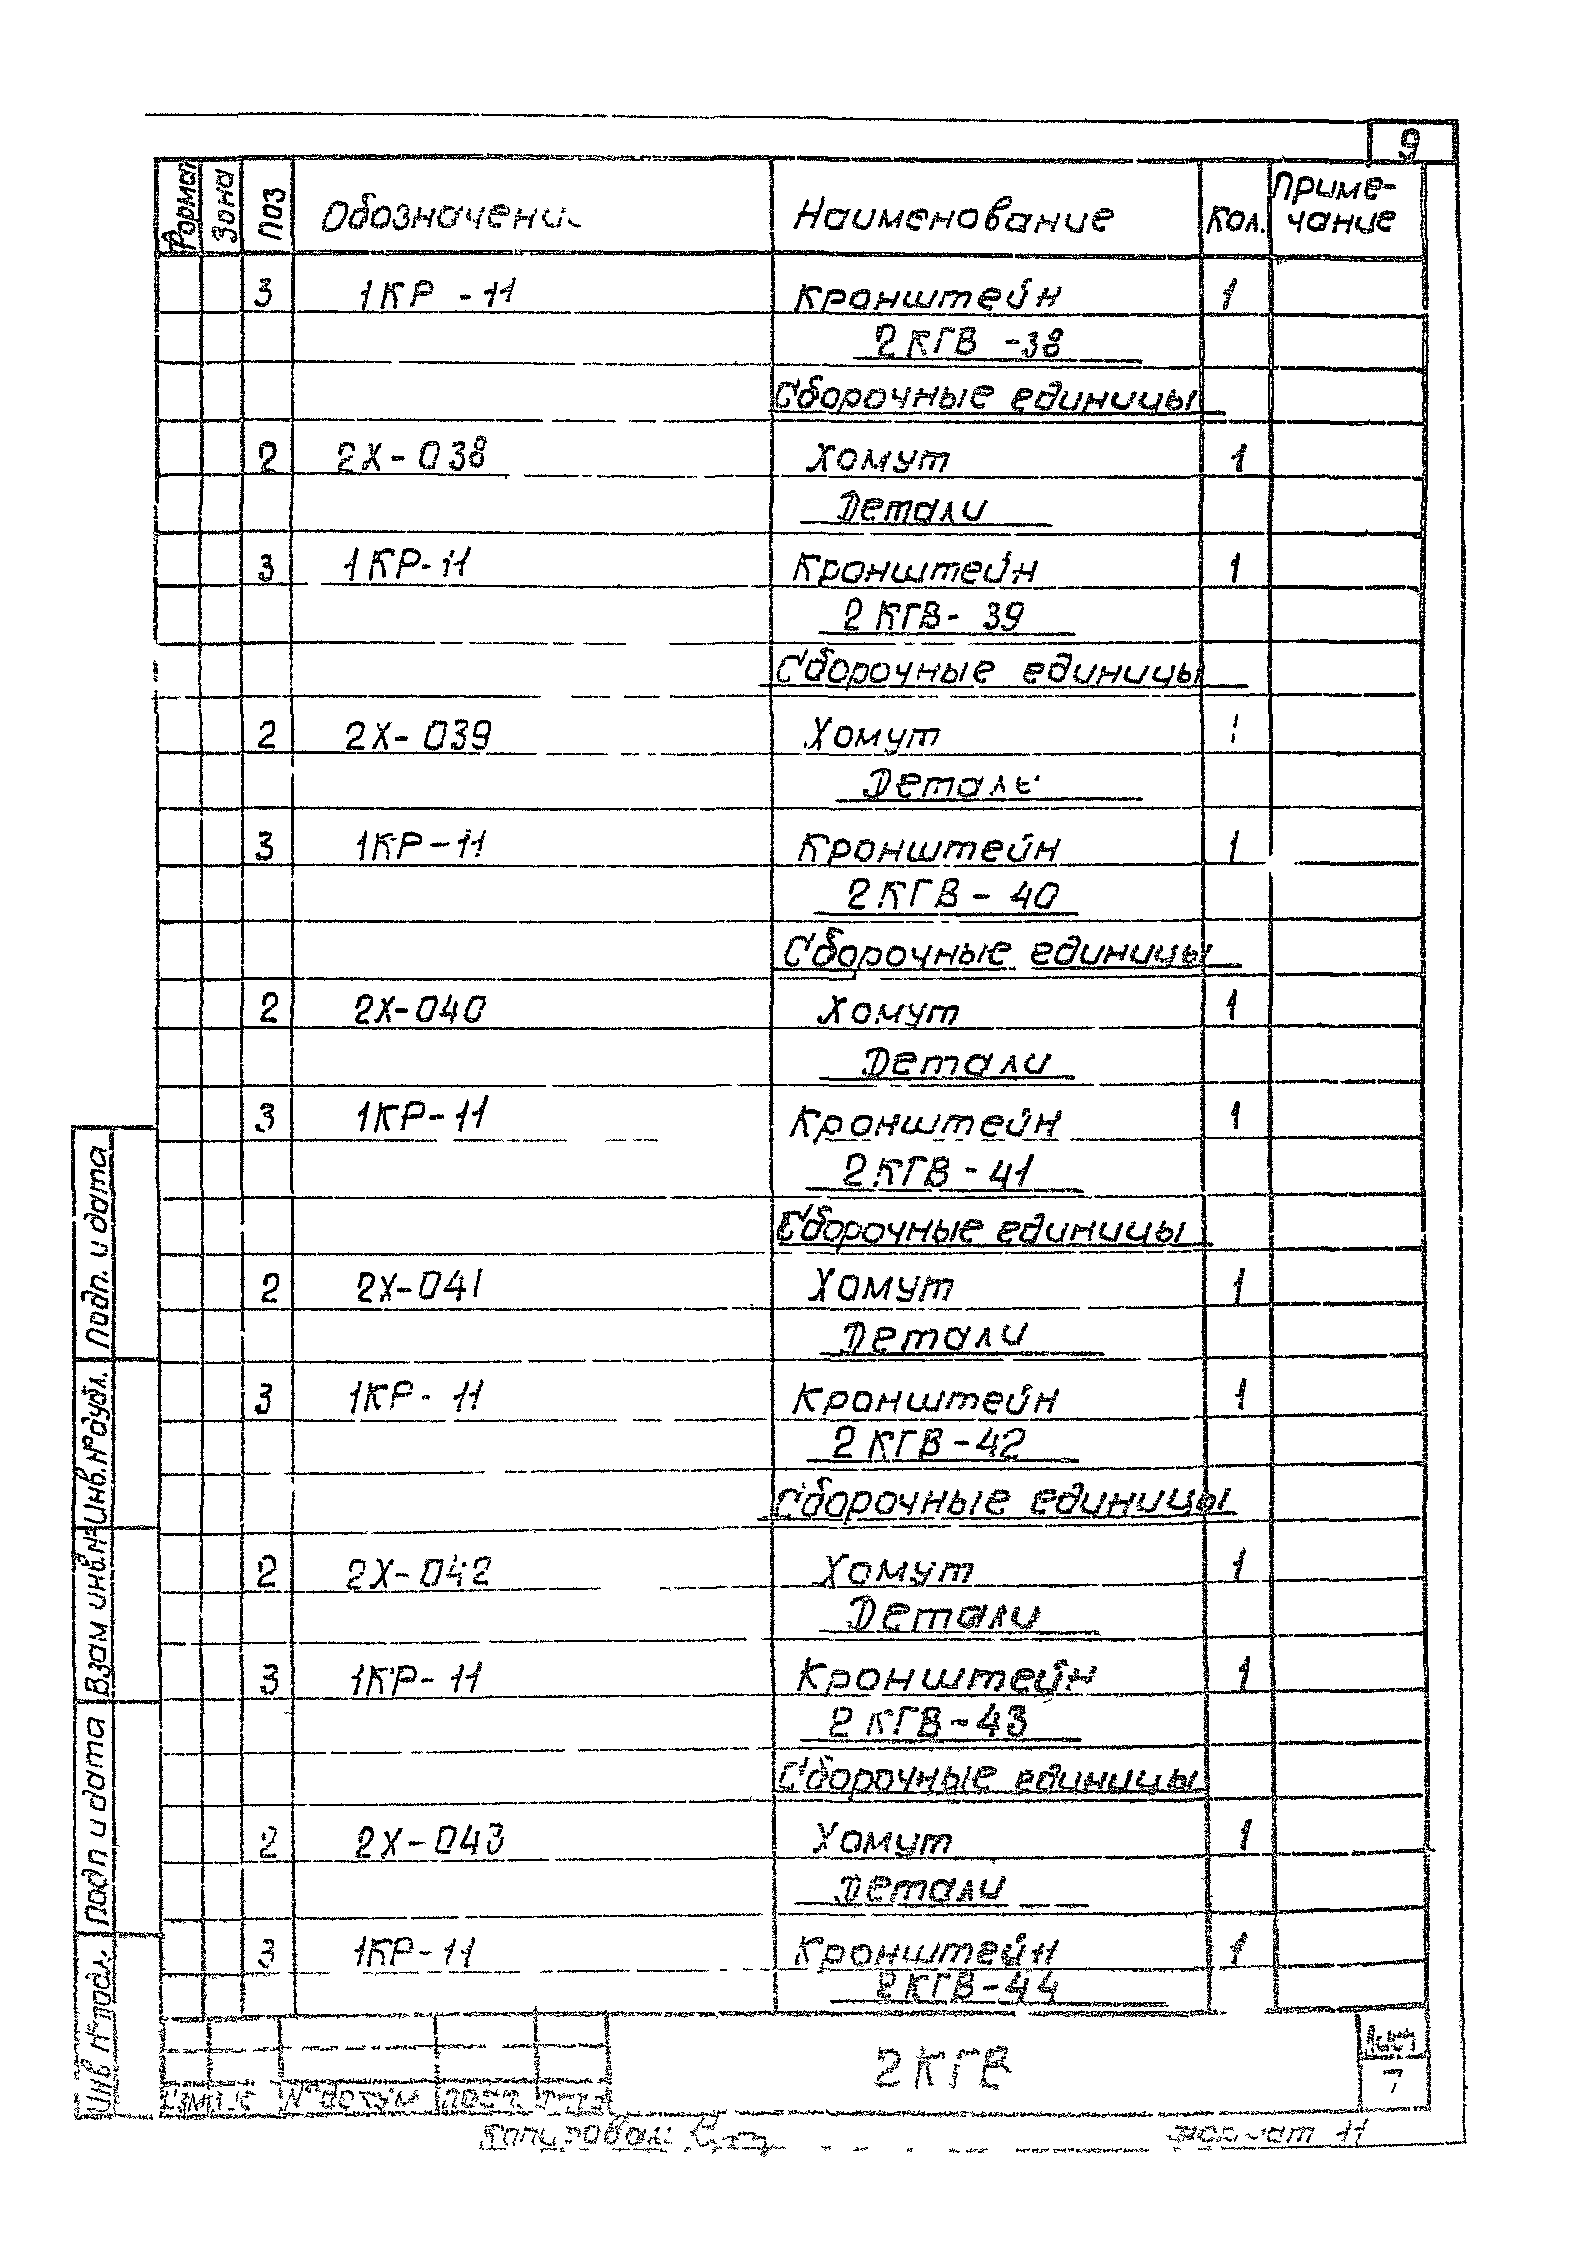 9
Формат Зона Поз Обозначени Наименование Кол. Приме-
чание
3 1КР -11 Кронштейн 1
2КГВ -38
Сборочные единицы
2 2Х-038 Хомут 1
Детали
3 1КР-11 Кронштейн 1
2КГВ- 39
Сборочные единицы
2 2Х-039 Хомут 1
Детали
3 1КР-11 Кронштейн 1
2КГВ- 40
Сборочные единицы
2 2Х-040 Хомут 1
Детали
3 1КР-11 Кронштейн 1
2КГВ-41
Сборочные единицы
2 2Х-041 Хомут 1
Детали
3 1КР-11 Кронштейн 1
2КГВ-42
Сборочные единицы
2 2Х-042 Хомут 1
Детали
3 1КР-11 Кронштейн 1
2КГВ-43
Сборочные единицы
2 2Х-043 Хомут 1
Детали
3 1КР-11 Кронштейн 1
2КГВ-44
Подп. и дата
Инв.№дубл.
Взам инв.№
подп и дата
Инв №подл.
2КГВ
Лист
7
№ докум
Копировал:
формат 11